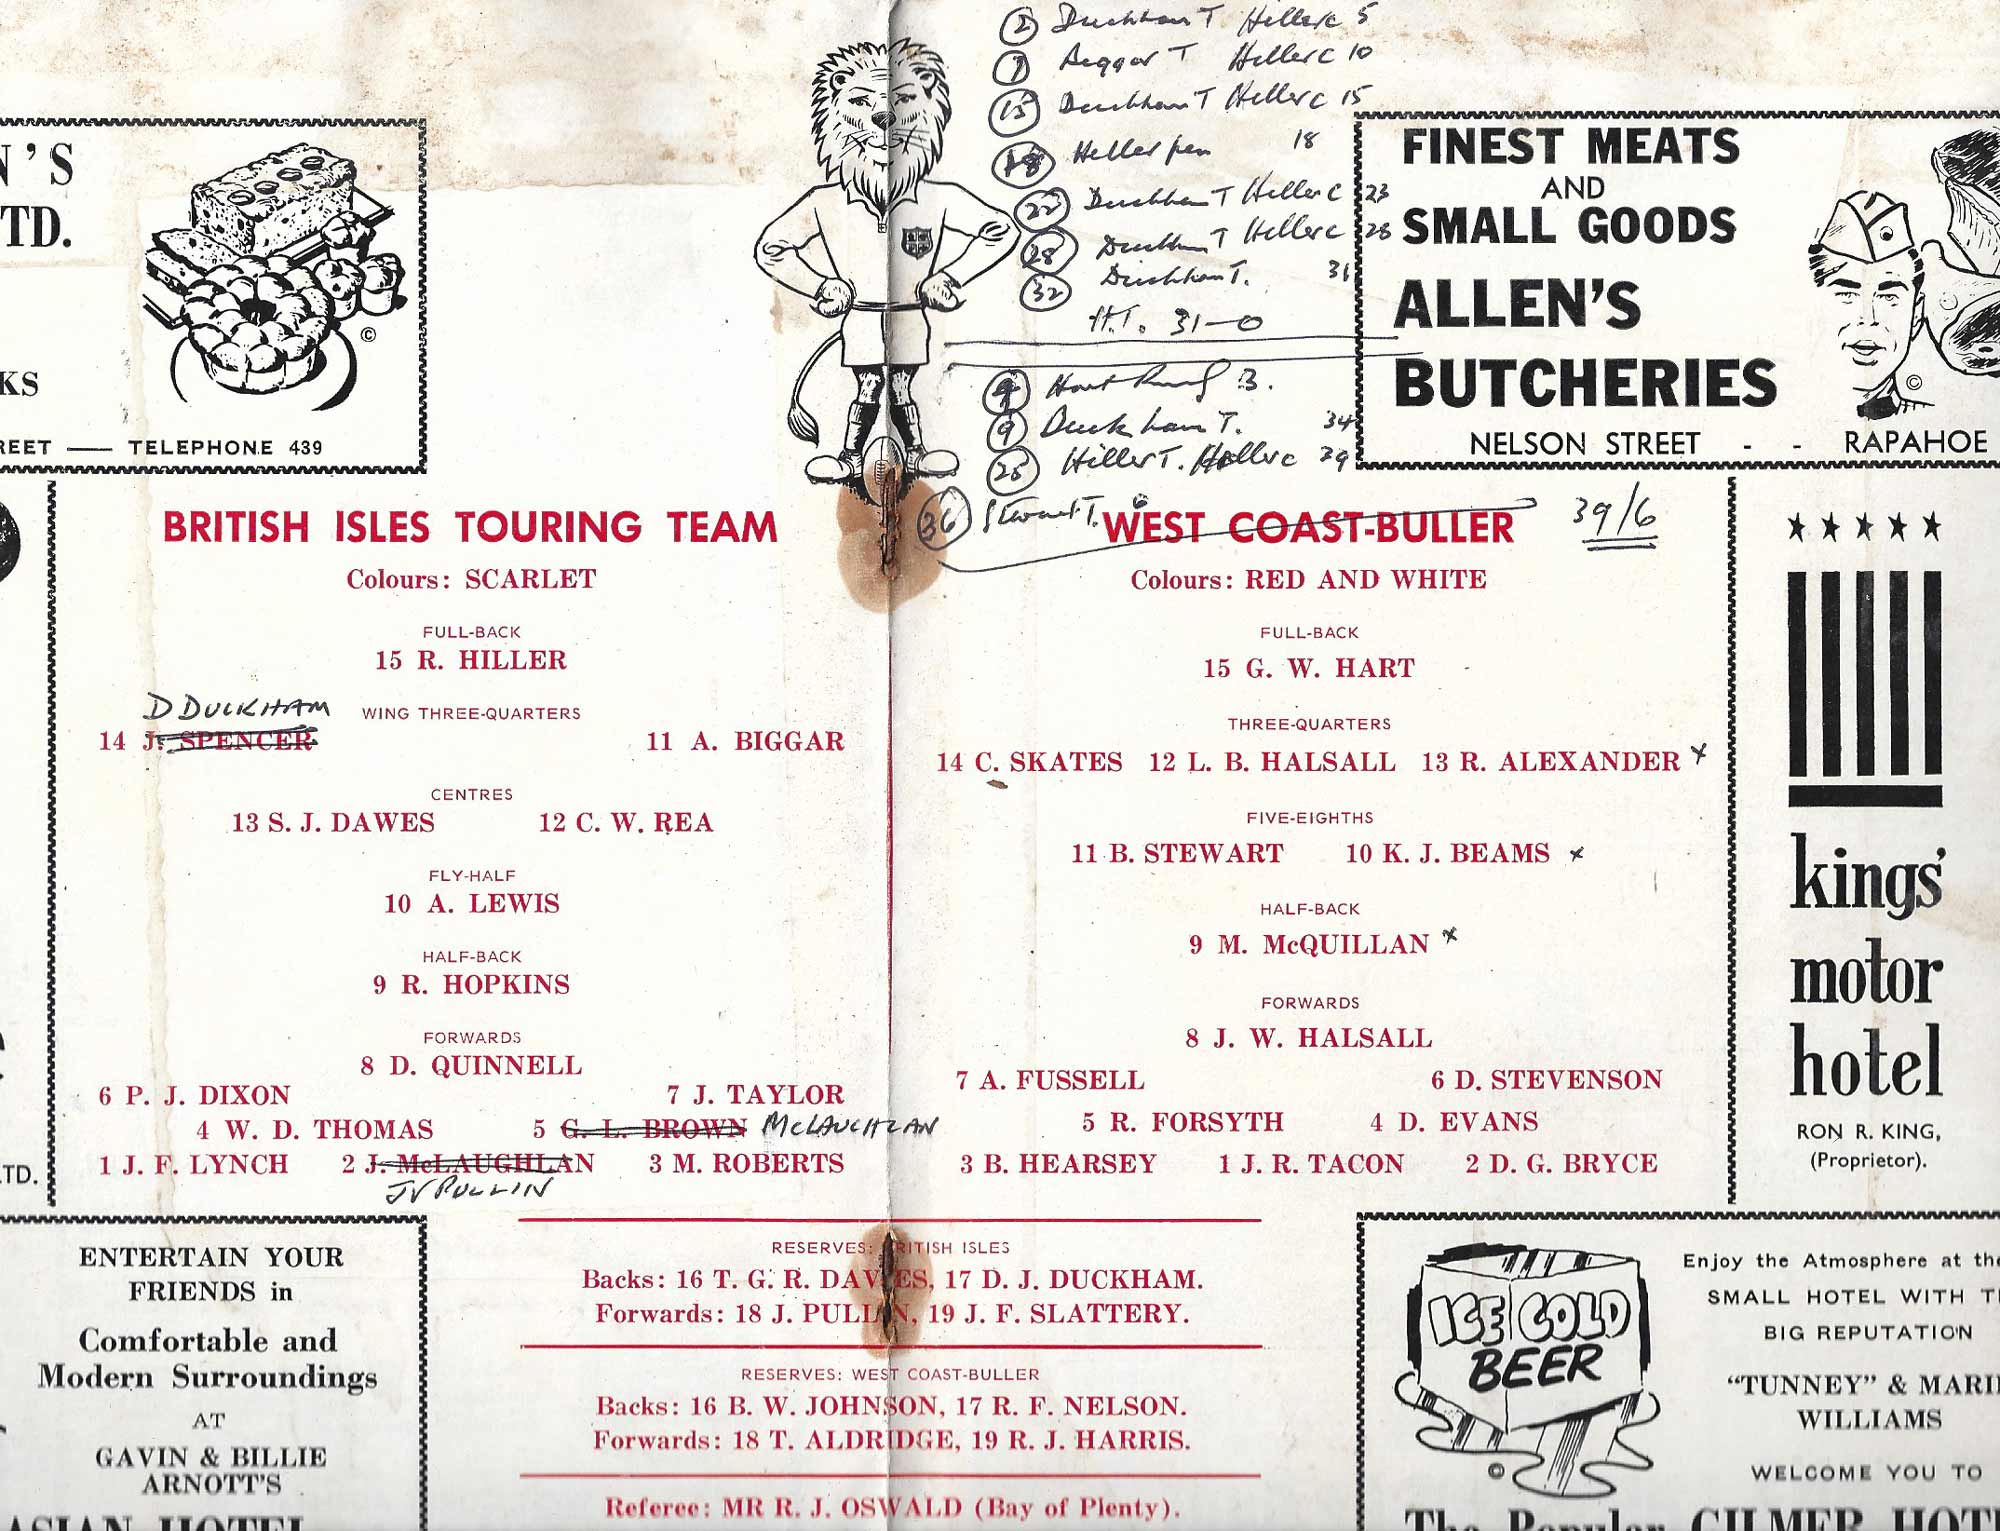 ② Duckham T Hiller c 5
⑦ Biggar T Hiller c 10
⑮ Duckham T Hiller c 15
⑱ Hiller pen 18
㉒ Duckham T Hiller c 23
㉘ Duckham T Hiller c 28
㉜ Duckham T. 31
H.T. 31-0
Hart 3.
⑨ Duckham T. 34
Hiller T. Hiller c 39
㊱ Stewart T. 6
39/6
N'S
TD.
KS
REET — TELEPHONE 439
©
FINEST MEATS
AND
SMALL GOODS
ALLEN'S
BUTCHERIES
NELSON STREET - - RAPAHOE
©
BRITISH ISLES TOURING TEAM
Colours: SCARLET
FULL-BACK
15 R. HILLER
D DUCKHAM
WING THREE-QUARTERS
14 J. SPENCER 11 A. BIGGAR
CENTRES
13 S. J. DAWES 12 C. W. REA
FLY-HALF
10 A. LEWIS
HALF-BACK
9 R. HOPKINS
FORWARDS
8 D. QUINNELL
6 P. J. DIXON 7 J. TAYLOR
4 W. D. THOMAS 5 G. L. BROWN McLAUCHLAN
1 J. F. LYNCH 2 J. McLAUGHLAN 3 M. ROBERTS
JV PULLIN
WEST COAST-BULLER
Colours: RED AND WHITE
FULL-BACK
15 G. W. HART
THREE-QUARTERS
14 C. SKATES 12 L. B. HALSALL 13 R. ALEXANDER x
FIVE-EIGHTHS
11 B. STEWART 10 K. J. BEAMS x
HALF-BACK
9 M. McQUILLAN x
FORWARDS
8 J. W. HALSALL
7 A. FUSSELL 6 D. STEVENSON
5 R. FORSYTH 4 D. EVANS
3 B. HEARSEY 1 J. R. TACON 2 D. G. BRYCE
kings'
motor
hotel
RON R. KING,
(Proprietor).
LTD.
RESERVES: BRITISH ISLES
Backs: 16 T. G. R. DAVIES, 17 D. J. DUCKHAM.
Forwards: 18 J. PULLIN, 19 J. F. SLATTERY.
RESERVES: WEST COAST-BULLER
Backs: 16 B. W. JOHNSON, 17 R. F. NELSON.
Forwards: 18 T. ALDRIDGE, 19 R. J. HARRIS.
Referee: MR R. J. OSWALD (Bay of Plenty).
ENTERTAIN YOUR
FRIENDS in
Comfortable and
Modern Surroundings
AT
GAVIN & BILLIE
ARNOTT'S
ASIAN HOTEL
ICE COLD
BEER
©
Enjoy the Atmosphere at the
SMALL HOTEL WITH T
BIG REPUTATION
"TUNNEY" & MARI
WILLIAMS
WELCOME YOU TO
The Popular GILMER HOT